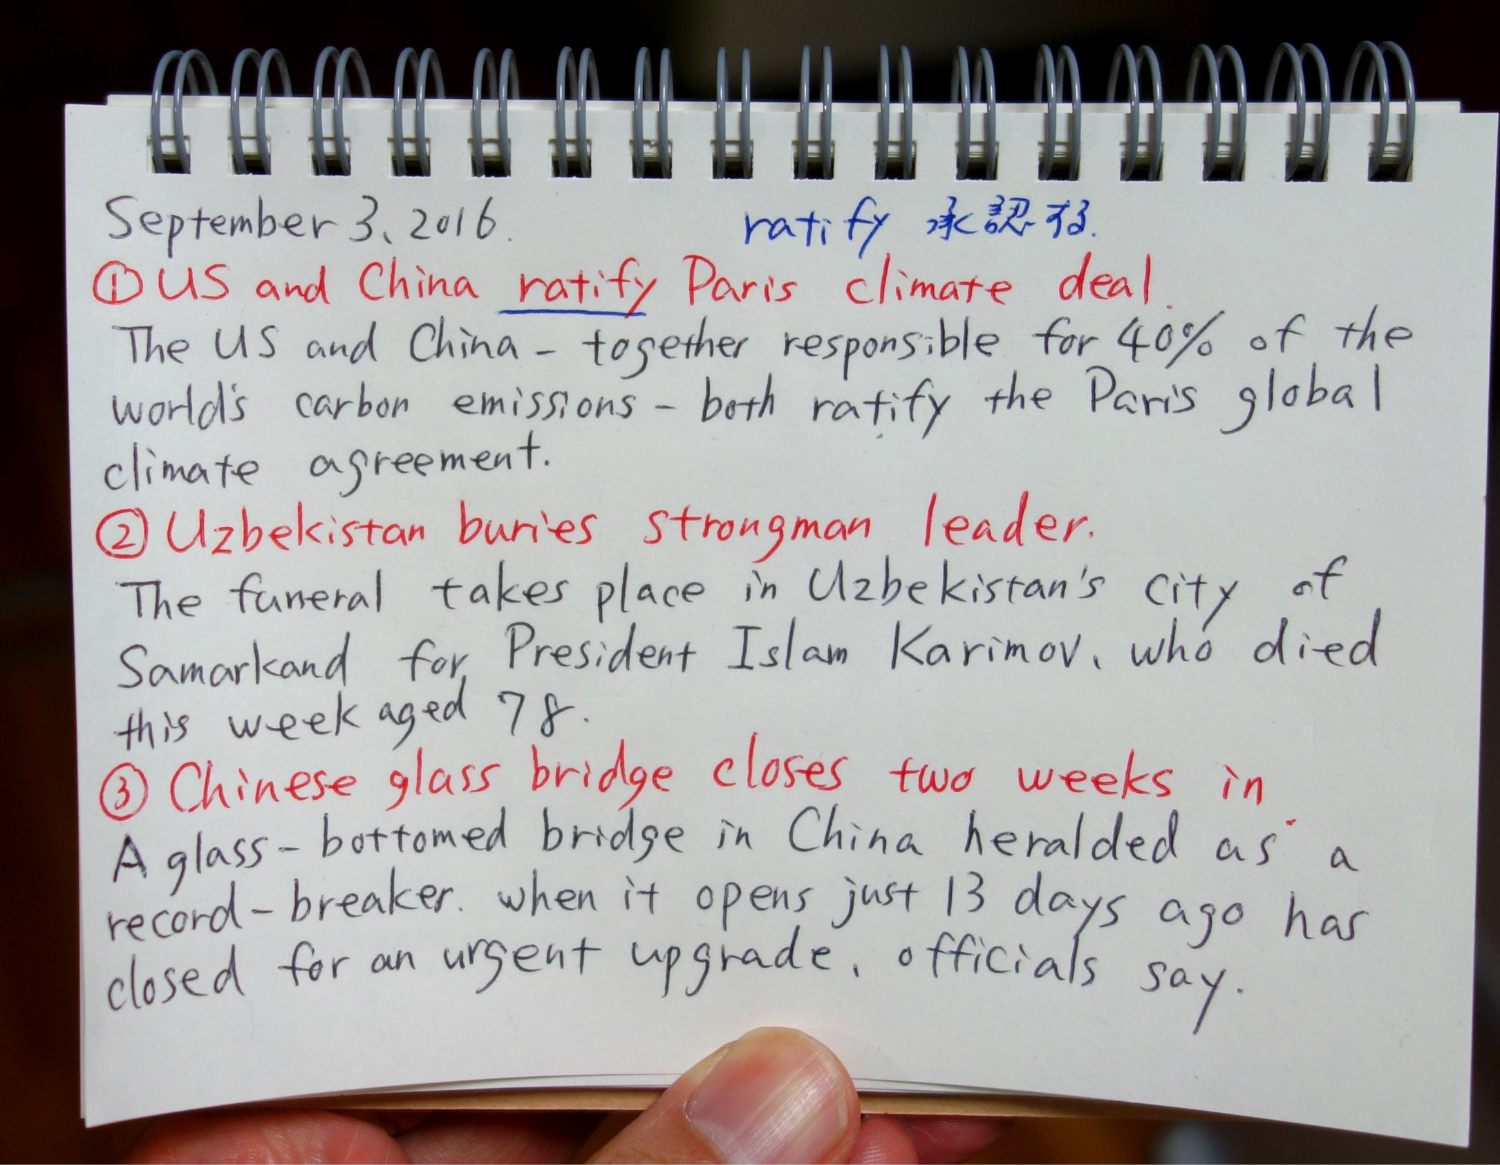 September 3, 2016.
ratify 承認する.
① US and China ratify Paris climate deal.
The US and China - together responsible for 40% of the
world's carbon emissions - both ratify the Paris global
climate agreement.
② Uzbekistan buries strongman leader.
The funeral takes place in Uzbekistan's city of
Samarkand for President Islam Karimov, who died
this week aged 78.
③ Chinese glass bridge closes two weeks in
A glass-bottomed bridge in China heralded as a
record-breaker. when it opens just 13 days ago has
closed for an urgent upgrade, officials say.